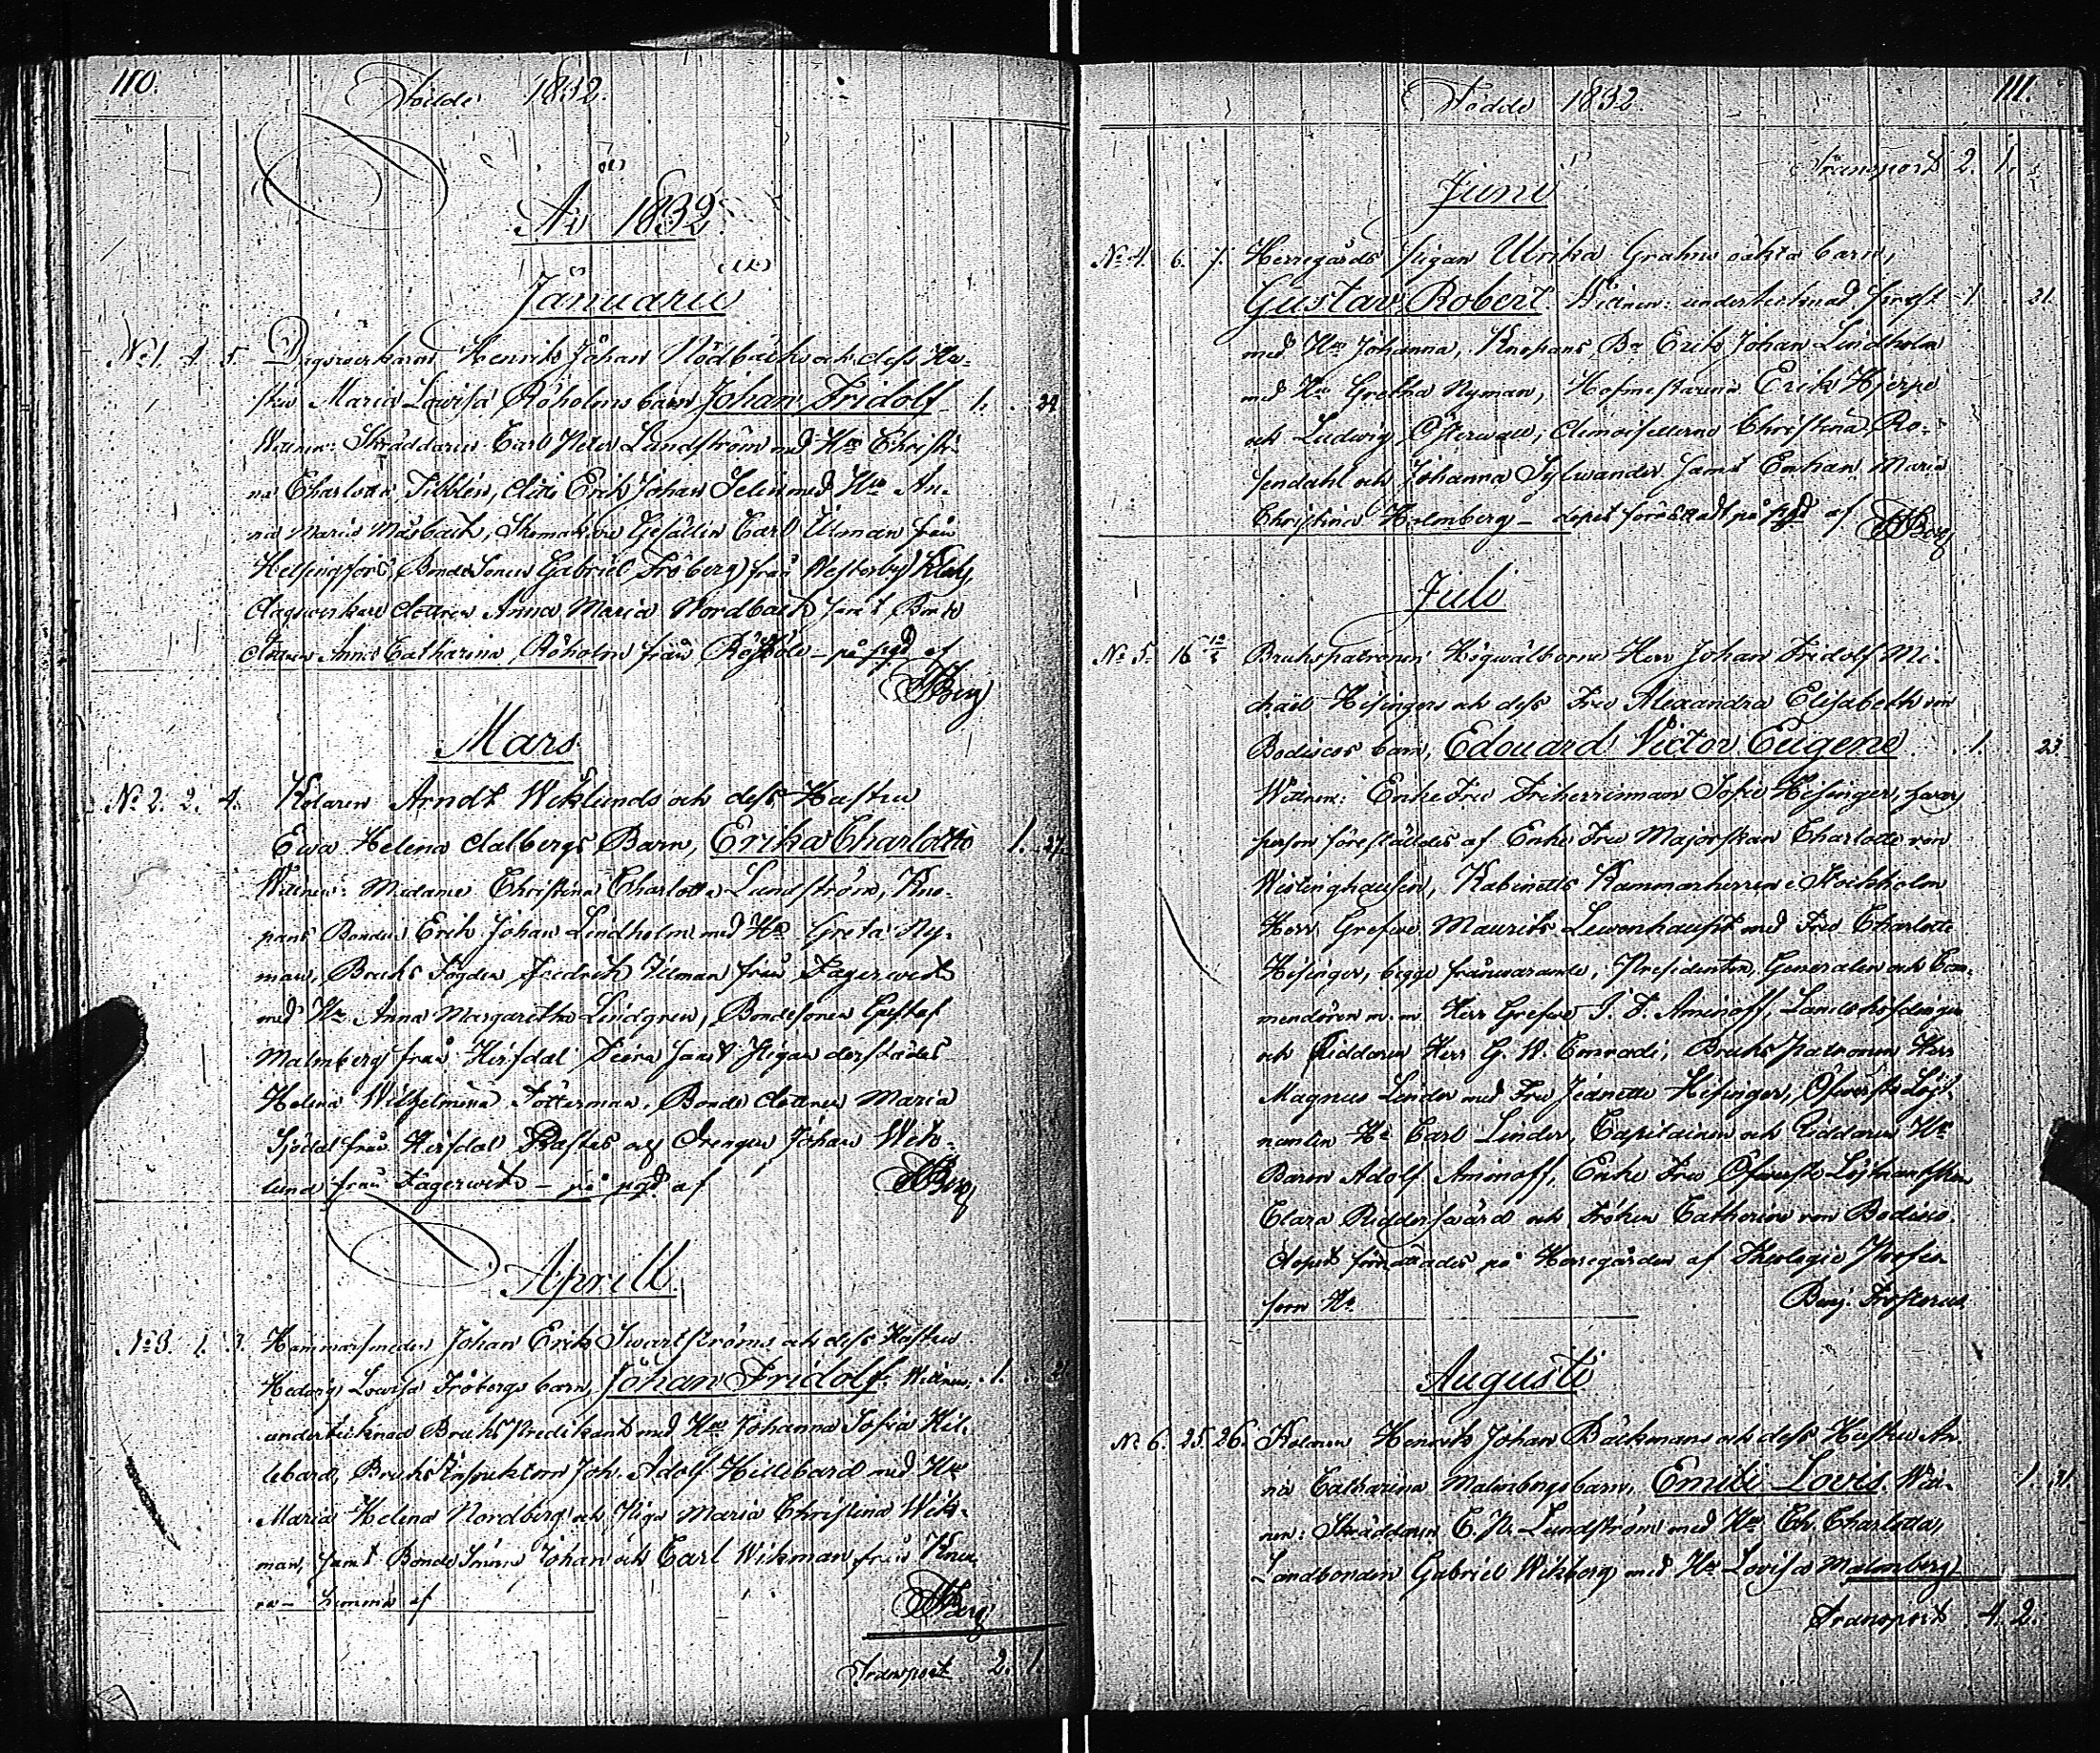 110.
Födde 1832.
År 1832.
Januarii
No 1. 4. 5. Dagsverkaren Henrik Johan Nödbäcks och dess Hu-
stru Maria Lovisa Röholms barn Johan Fridolf 1. 24
Wittnen: Skräddaren Carl Peter Lundström med Hu Christi-
na Charlotta Tibblin, dito Erik Johan Selin med Hu An-
na Maria Måsbäck, Skomakare Gesällen Carl Ulman från
Helsingfors, Bonde Sonen Gabriel Fröberg från Westerby
dagsverkare dottren Anna Maria Nordbäck samt Bonde
dottren Anna Catharina Röholm från - på pgd af
Berg
Mars
No 2. 2. 4. Kolaren Arndt Wiklunds och dess Hustru
Ewa Helena dalbergs Barn, Erika Charlotta 1. 27
Wittnen: Madame Christina Charlotta Lundström, Kno-
pans Bonden Erik Johan Lindholm med Hu Greta Ny-
man, Bruks Fogden Fredrik Ulman från Fagerwik
med Hu Anna Margaretha Lindgren, Bondesonen Gustaf
Malmberg från samt Pigan derstädes
Helena Wilhelmina Fötterman, Bonde dottren Maria
Sjödal från och Drengen Johan Wik-
lund från Fagerwik - på pgd af Berg
Aprill
No 3. 1. 3. Hammarsmeden Johan Erik Swartströms och dess Hustru
Hedvig Lovisa Fröbergs barn, Johan Fridolf. Wittnen, 1.
undertecknad Bruks Predikant med Hu Johanna Sofia Hil-
lebard, Bruks Inspektorn Joh. Adolf Hillebard med Hu
Maria Helena Nordberg och Piga Maria Christina Wik-
man, samt Bonde Söner Johan och Carl Wikman från
hemma af Berg
Transport 2. 1.
111.
Födde 1832
Transport 2. 1.
Junii
No 4. 6. 7. Herregårds pigan Ulrika Grahns oäkta barn,
Gustav Robert Wittnen: undertecknad 1. 21
med Hu Johanna, Knopans Bn Erik Johan Lindholm
med Hu Gretha Nyman, Erik Hjerpe
och Ludwig Österwall, demoisellerne Christina Ro-
sendahl och Johanna Sylwander samt Enkan Maria
Christina Holmberg - dopet förrättadt på pgd af Berg
Juli
No 5. 16 Brukspatronen Högwälborne Herr Johan Fridolf Mi-
chael Hisingers och dess Fru Alexandra Elisabeth von
Bodiscos barn, Edouard Victor Eugene 1. 23
Wittnen: Enke Fru Friherrinnan Sofie Hisinger, hwars
person föreställdes af Enke Fru Majorskan Charlotte von
Wistinghausen, Kabinetts Kammarherren i Stockholm
Herr Grefve Maurits Lewenhaupt med Fru Charlotte
Hisinger, begge frånwarande, Presidenten, Generalen och Com-
mendören m. m. Herr Grefve J. F. Aminoff, Landshöfdingen
och Riddaren Herr G. W. Conradi, Bruks Patronen Herr
Magnus Linder med Fru Jeanette Hisinger, Öfverste Löjt-
nanten Hr Carl Linder, Capitainen och Riddaren Hr
Baron Adolf Aminoff, Enke Fru Öfverste Löjtnantskan
Clara Riddersvärd och Fröken Catharine von Bodisco.
Dopet förrättades på Herregården af Theologie Profes-
sorn Hr Benj. Frosterus
Augusti
No 6. 25. 26. Kolaren Henrik Johan Bäckmans och dess Hustru An-
na Catharina Malmbergs barn, Emili Lovis. Witt- 1. 31.
nen: Skräddaren C. P. Lundström med Hu Ch. Charlotta,
Landbonden Gabriel Wikberg med Hu Lovisa Malmberg
Transport 4. 2.